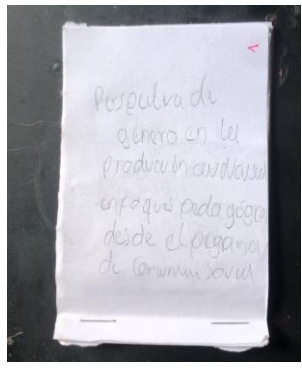 Perspectiva de
género en la
producción audiovisual
enfoques pedagógico
desde el programa
de Comunic social